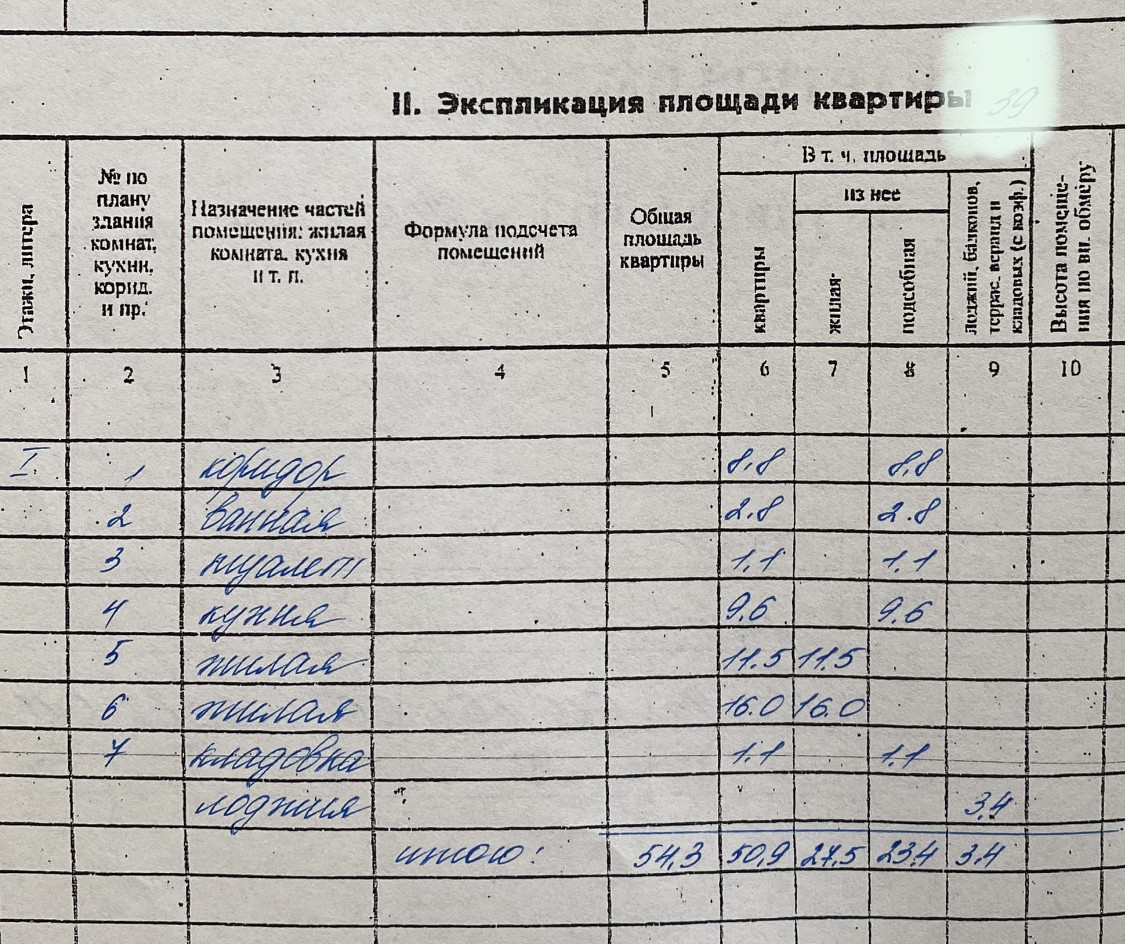 II. Экспликация площади квартиры 39
Этажи, литера
№ по плану здания комнат, кухни, корид. и пр.
Назначение частей помещения: жилая комната, кухня и т. п.
Формула подсчета помещений
Общая площадь квартиры
В т. ч. площадь
квартиры
из нее
жилая
подсобная
лоджий, балконов, террас, веранд и кладовых (с коэф.)
Высота помеще-ния по вн. обмеру
1 2 3 4 5 6 7 8 9 10
I 1 коридор 8,8 8,8
2 ванная 2.8 2.8
3 туалет 1,1 1,1
4 кухня 9.6 9.6
5 жилая 11.5 11.5
6 жилая 16.0 16.0
7 кладовка 1.1 1.1
лоджия 3,4
итого: 54,3 50,9 27,5 23,4 3.4